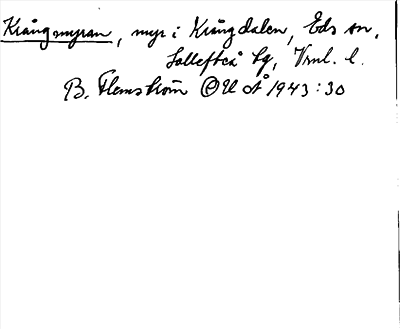 Krångmyran, myr i Krångdalen, Eds sn,
Sollefteå tg, Vrnl. l.
B. Flemström OUÅ 1943:30